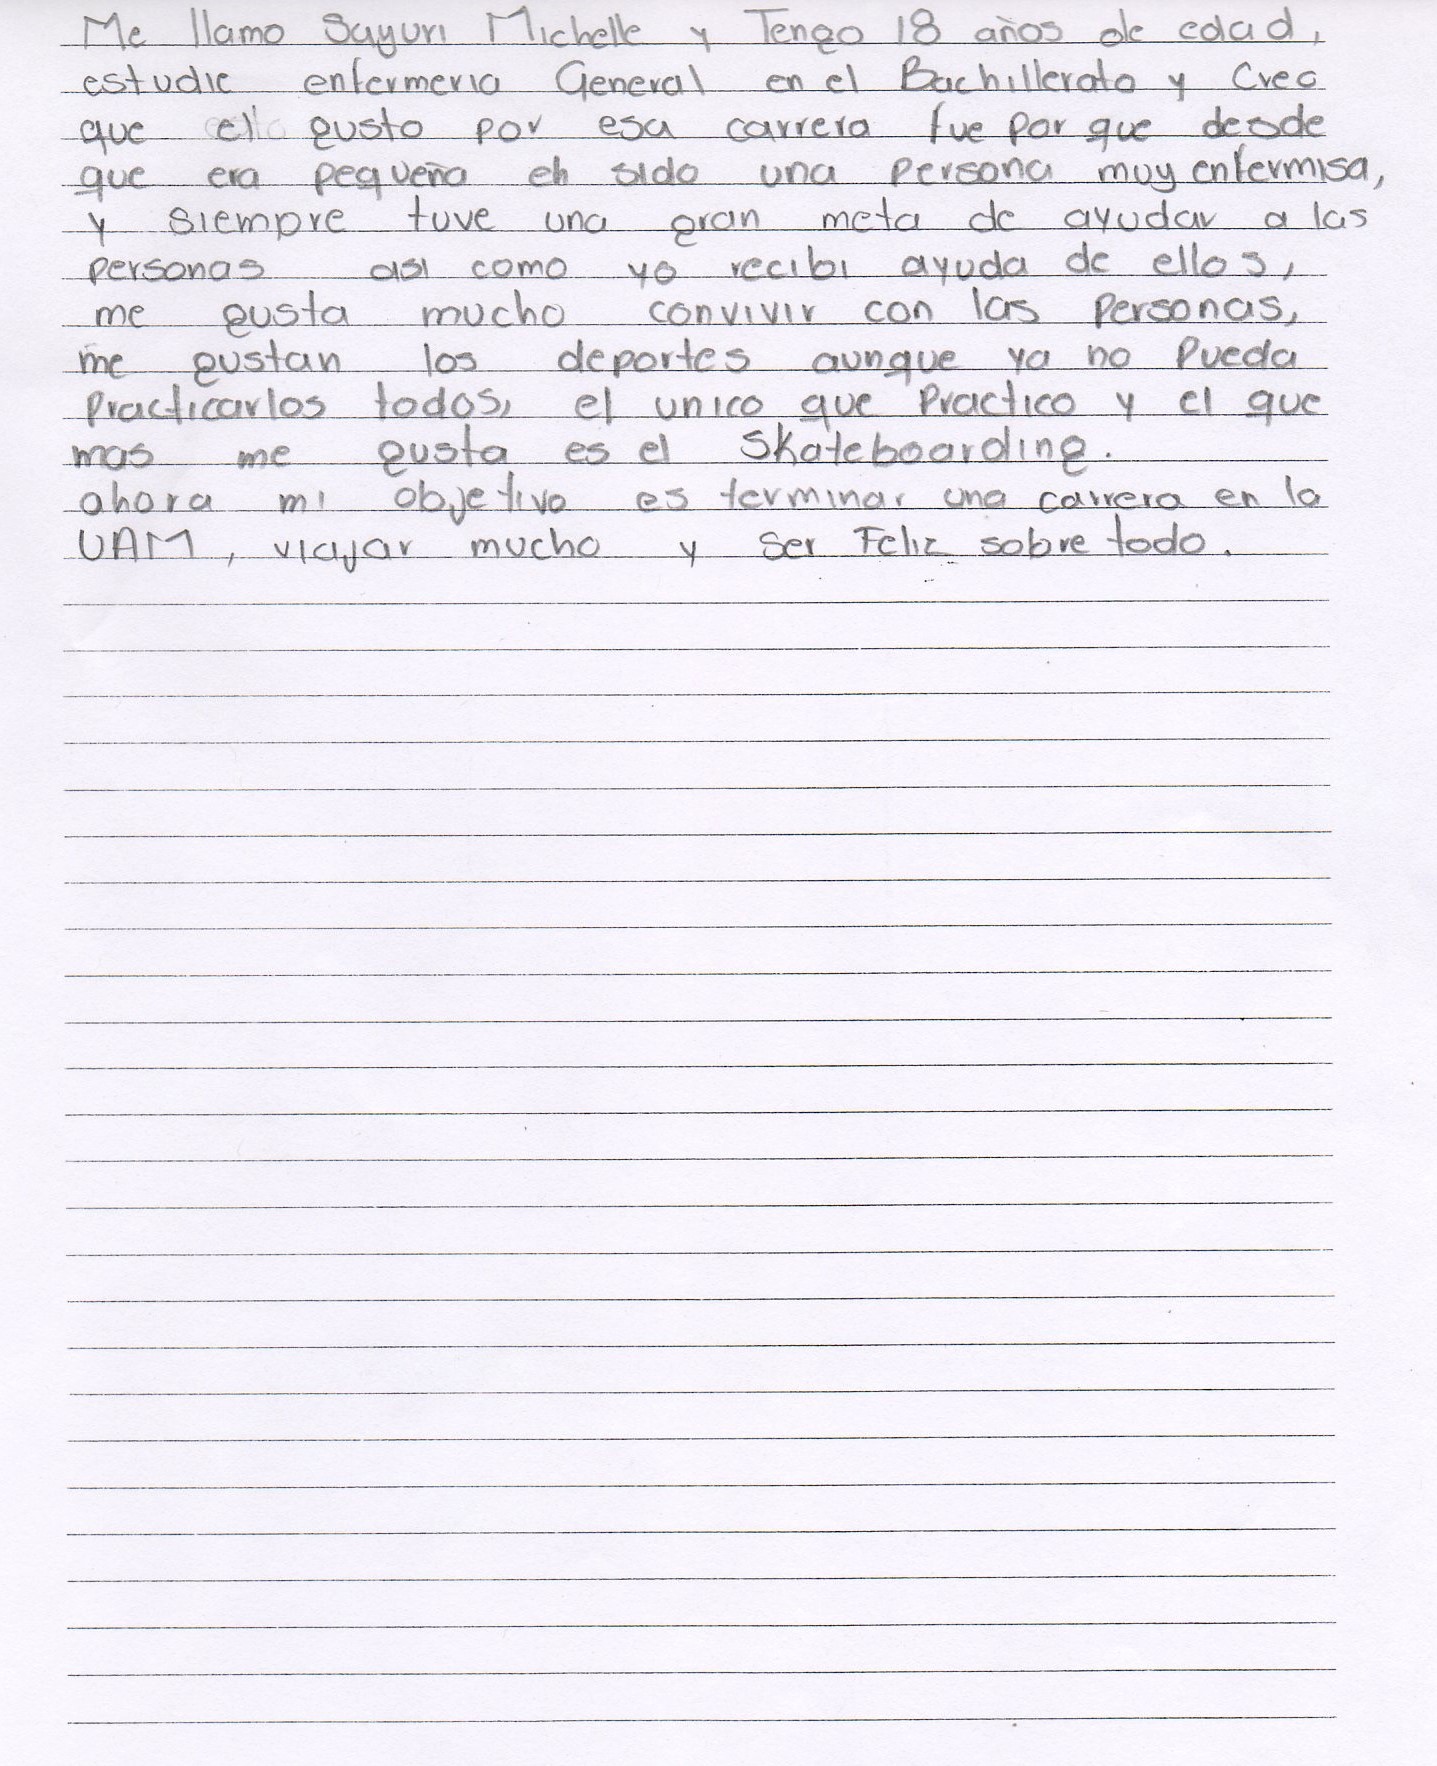 Me llamo Sayuri Michelle y Tengo 18 años de edad,
estudie enfermeria General en el Bachillerato y Creo
que el gusto por esa carrera fue por que desde
que era pequeña eh sido una persona muy enfermisa,
y siempre tuve una gran meta de ayudar a las
personas asi como yo recibi ayuda de ellos,
me gusta mucho convivir con las personas,
me gustan los deportes aunque ya no Pueda
Practicarlos todos, el unico que Practico y el que
mas me gusta es el Skateboarding.
ahora mi objetivo es terminar una carrera en la
UAM, viajar mucho y ser Feliz sobre todo.